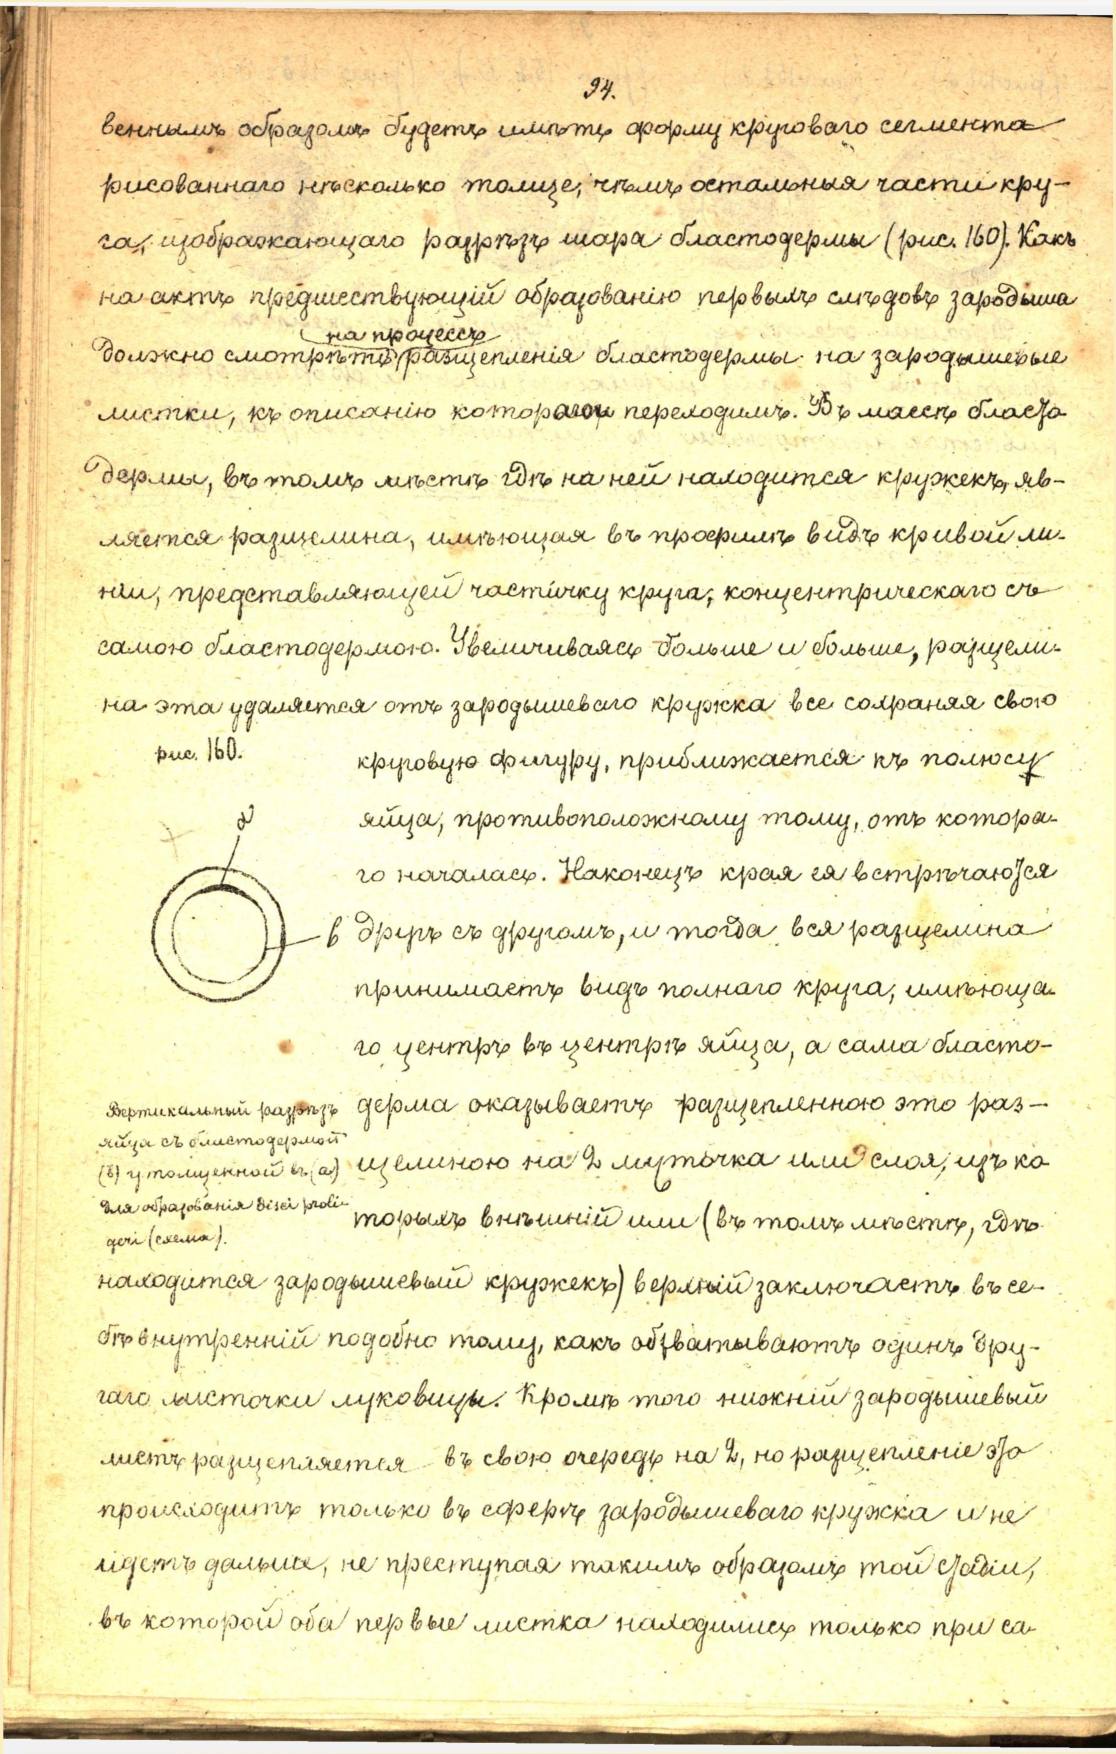 94.
веннымъ образомъ будетъ имѣть форму круговаго сегмента
рисованнаго нѣсколько толще, чѣмъ остальныя части кру-
га, изображающаго разрѣзъ шара бластодермы (рис. 160). Какъ
на актъ предшествующій образованію первыхъ слѣдовъ зародыша
на процессъ
должно смотрѣть разщепленія бластодермы на зародышевые
листки, къ описанію котораго переходимъ. Въ массѣ бласто
дермы, въ томъ мѣстѣ гдѣ на ней находится кружекъ, яв-
ляется разщелина, имѣющая въ профилѣ видъ кривой ли-
ніи, представляющей частичку круга, концентрическаго съ
самою бластодермою. Увеличиваясь больше и больше, разщели-
на эта удаляется отъ зародышеваго кружка все сохраняя свою
рис. 160.
круговую фигуру, приближается къ полюсу
яйца, противоположному тому, отъ котора-
го началась. Наконецъ края ея встрѣчаются
другъ съ другомъ, и тогда вся разщелина
принимаетъ видъ полнаго круга, имѣюща-
го центръ въ центрѣ яйца, а сама бласто-
дерма оказываетъ разщепленною это раз-
щелиною на 2 мѣточка или слоя, изъ ко
торыхъ внѣшній или (въ томъ мѣстѣ, гдѣ
а
в
Вертикальный разрѣзъ
яйца съ бластодермой
(в) утолщенной въ (а)
для образованія disci proli-
geri (схема).
находится зародышевый кружекъ) верхній заключаетъ въ се-
бѣ внутренній подобно тому, какъ обхватываютъ одинъ дру-
гаго листочки луковицы. Кромѣ того нижній зародышевый
листъ разщепляется въ свою очередь на 2, но разщепленіе это
происходитъ только въ сферѣ зародышеваго кружка и не
идетъ дальше, не преступая такимъ образомъ той стадіи,
въ которой оба первые листка находились только при са-